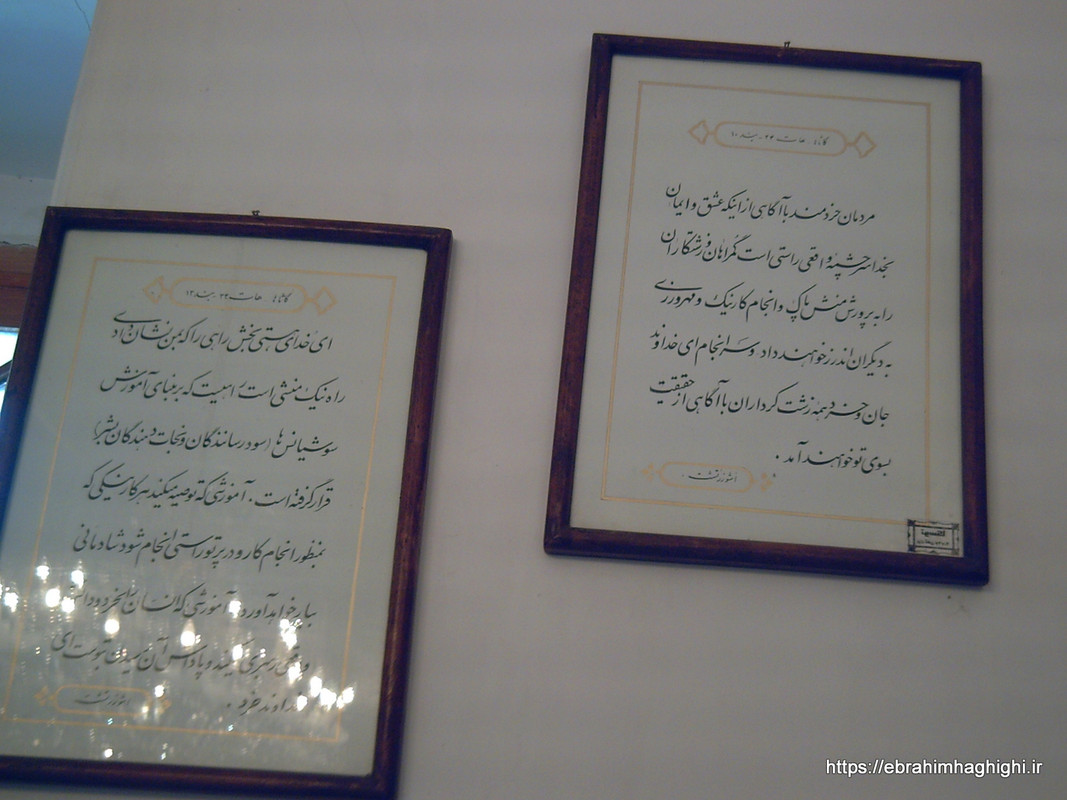 گاتاها هات ۳۴ـ بند ۱۰
مردمان خردمند با آگاهی از اینکه عشق و ایمان
بخدا سرچشمه واقعی راستی است گمراهان و زشتکاران
را به پرورش منش پاک و انجام کار نیک و مهرورزی
به دیگران اندرز خواهند داد و سرانجام ای خداوند
جان و خرد همه زشت کرداران با آگاهی از حقیقت
بسوی تو خواهند آمد .
اشوزرتشت
گاتاها هات ۳۴ـ بند ۱۳
ای خدای هستی بخش راهی را که بمن نشان دادی
راه نیک منشی است راهیست که بر مبنای آموزش
سوشیانس ها (سود رسانندگان و نجات دهندگان بشر)
قرار گرفته است . آموزشی که توصیه میکند هر کار نیکی که
بمنظور انجام کار و در پرتو راستی انجام شود شادمانی
ببار خواهد آورد آموزشی که انسان را بخرد و دانش
واقعی رهبری میکند و پاداش آن رسیدن بتوست ای
خداوند خرد .
اشوزرتشت
https://ebrahimhaghighi.ir